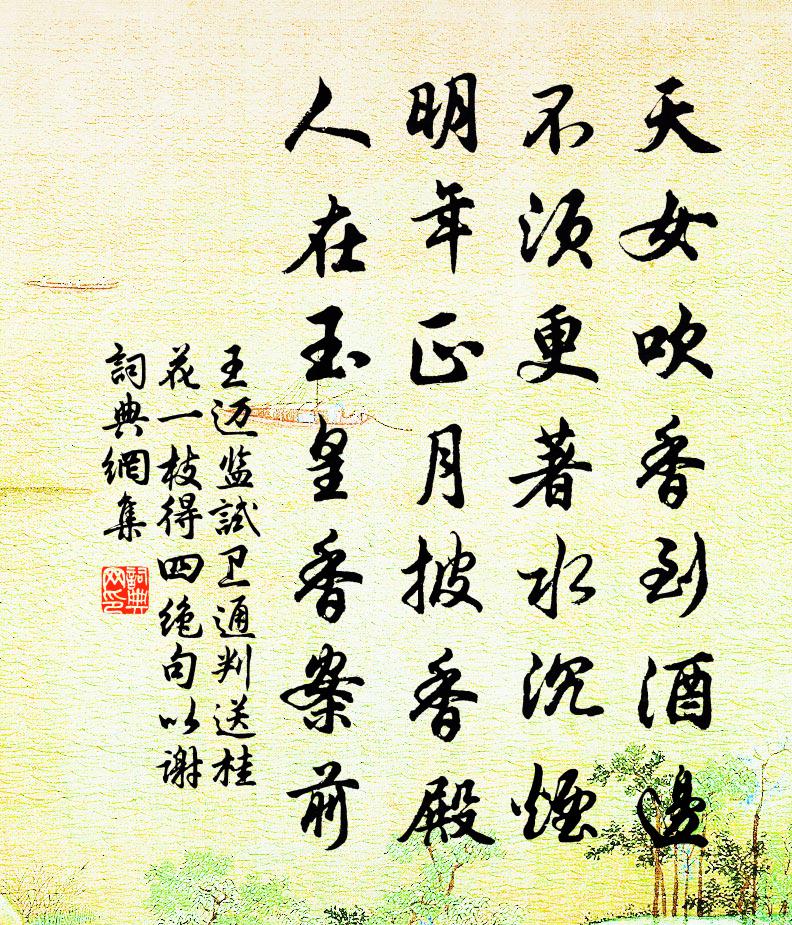 天女吹香到酒邊
不須更著水沉煙
明年正月披香殿
人在玉皇香案前
王迈监試卫通判送桂
花一枝得四絶句以谢
詞典網集
詞典網印